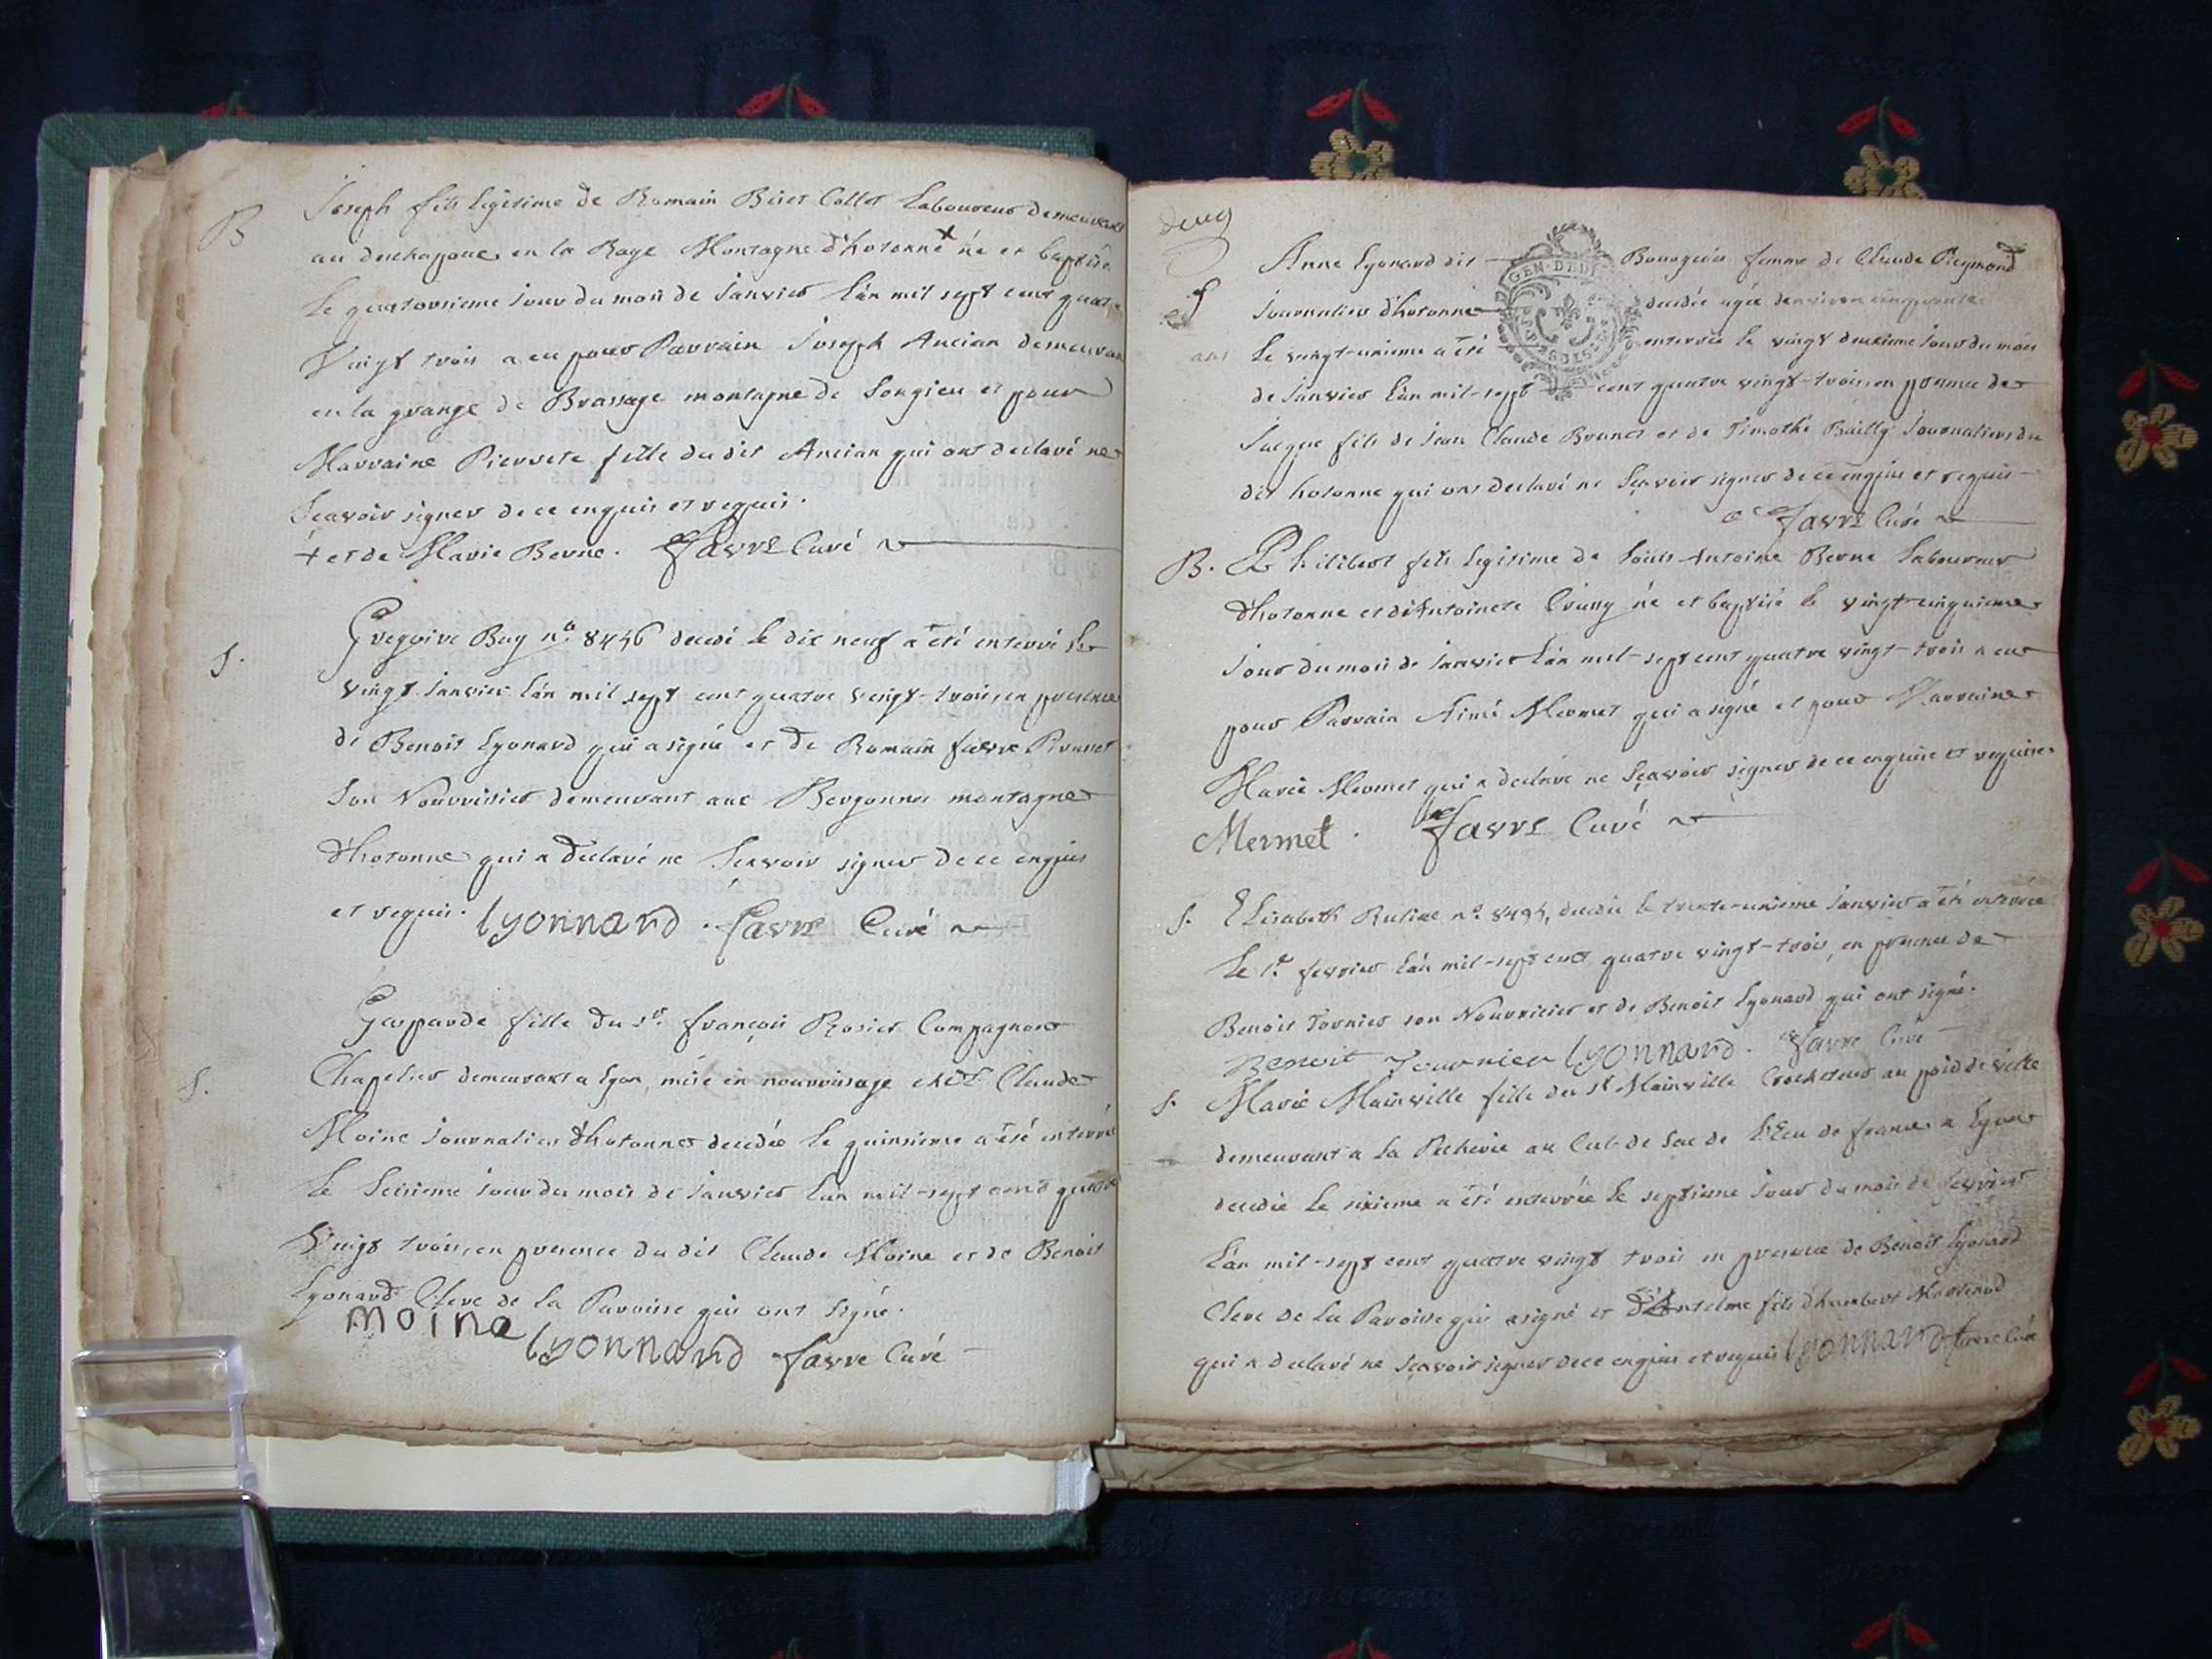 B
Joseph fils legitime de Romain Biset Collet Laboureur demeurant
au en la Raye Montagne d'hotonne x né et baptisé
Le quatorsieme jour du mois de janvier L'an mil sept cent quatre
Vingt trois a eu pour Parrain Joseph Ancian demeurant
en la grange de Brassage montagne de Songieu et pour
Marraine Pierrete fille du dit Ancian qui ont declaré ne
Sçavoir signer de ce enquis et requis.
+ et de Marie Berne. favre Curé
S.
Gregoire Buy no. 8456 decedé le dix neuf a été enterré le
vingt janvier L'an mil sept cent quatre vingt-trois, en presence
de Benoit Lyonard qui a signé et de Romain favre
Son Nourrissier demeurant aux Bergonnes montagne
d'hotonne qui a declaré ne Sçavoir signer de ce enquis
et requis. lyonnard. favre Curé
S.
Gasparde fille du sr. françois Rosier Compagnon
Chapelier demeurant a Lyon, mise en nourrissage chez Claude
Moine journalier d'hotonne decedée le quinsieme a été enterrée
le Seisieme jour du mois de janvier L'an mil-sept cent quatre
Vingt trois, en presence du dit Claude Moine et de Benoit
Lyonard Clerc de la Paroisse qui ont Signé.
moine lyonnard favre Curé
deux
S
Anne Lyonard dit Bourgeois femme de Claude Reymond
journalier d'hotonne decedée agée denviron cinquante
ans Le vingt-unieme a été enterrée le vingt deuxieme jour du mois
de janvier L'an mil-sept cent quatre vingt-trois, en presence de
Jacque fils de jean Claude Brunet et de Timothé Bailly journaliers du
dit hotonne qui ont declaré ne Sçavoir signer de ce enquis et requis
favre Curé
B. Philibert fils legitime de Louis Antoine Berne Laboureur
d'hotonne et d'Antoinete né et baptisé le vingt-cinquieme
jour du mois de janvier L'an mil-sept cent quatre vingt-trois a eu
pour Parrain Aimé Mermet qui a signé et pour Marraine
Marie Mermet qui a declaré ne Sçavoir signer de ce enquise et requise.
Mermet. favre Curé
S. Elisabeth no. decedée le trente-unieme janvier a été enterrée
Le 1er fevrier L'an mil-sept cent quatre vingt-trois, en presence de
Benoit Tornier son Nourricier et de Benoit Lyonard qui ont signé.
Benoit lyonnard. favre Curé
S. Marie Mainville fille du sr Mainville Crocheteur au poid de ville
demeurant a la Pecherie au Cul-de Sac de L'Ecu de france a Lyon
decedée le sixieme a été enterrée le septieme jour du mois de fevrier
L'an mil-sept cent quatre vingt trois en presence de Benoit Lyonard
Clerc de la Paroisse qui a signé et d'Antelme fils d'humbert
qui a declaré ne Sçavoir signer de ce enquis et requis lyonnard favre Curé